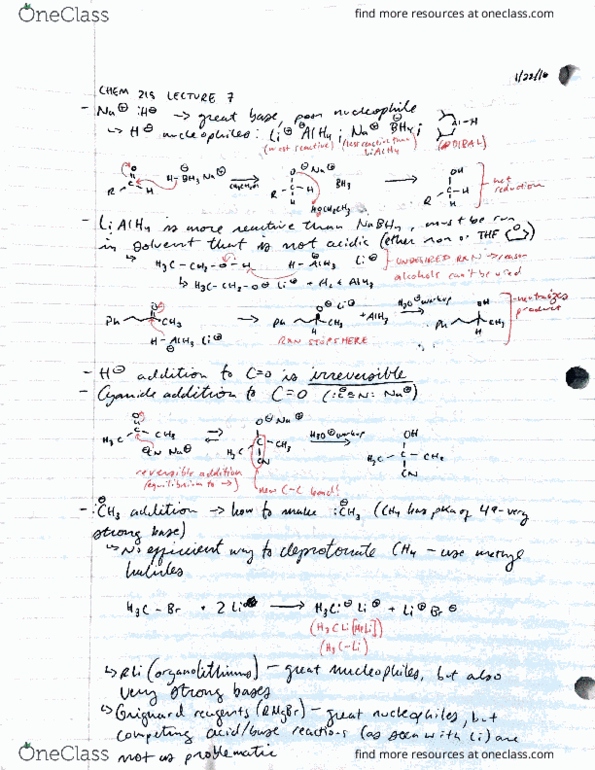 OneClass
find more resources at oneclass.com
1/22/16
CHEM 215 LECTURE 7
- Na⊕ :H⊖ → great base, poor nucleophile
↳ H⊖ nucleophiles: Li⊕ ⊖AlH4; Na⊕ ⊖BH4; Al-H
(most reactive) (less reactive than LiAlH4) (DIBAL)
R H H-BH3 Na⊕ CH3CH2OH → O⊖ Na⊕ H BH3 → OH R H
HOCH2CH3
net reduction
- LiAlH4 is more reactive than NaBH4, must be run
in solvent that is not acidic (ether or THF)
↳ H3C-CH2-O-H H-AlH3 Li⊕
UNDESIRED RXN → reason alcohols can't be used
↳ H3C-CH2-O⊖ Li⊕ + H2 + AlH3
Ph CH3 → Ph O⊖ Li⊕ CH3 + AlH3 H3O⊕ workup → Ph OH CH3
neutralizes product
H-AlH3 Li⊕
RXN STOPS HERE
- H⊖ addition to C=O is irreversible
- Cyanide addition to C=O (:C≡N: Na⊕)
H3C CH3 ⇌ O⊖ Na⊕ H3C C CH3 CN H3O⊕ workup → OH H3C C CH3 CN
⊖CN Na⊕
reversible addition
(equilibrium to →)
new C-C bond!
- :⊖CH3 addition → how to make :⊖CH3 (CH4 has pKa of 49-very
strong base)
↳ No efficient way to deprotonate CH4 - use methyl
halides
H3C-Br + 2 Li → H3C⊖ Li⊕ + Li⊕ Br⊖
(H3CLi [MeLi])
(H3C-Li)
↳ RLi (organolithiums) - great nucleophiles, but also
very strong bases
↳ Grignard reagents (RMgBr) - great nucleophiles, but
competing acid/base reactions (as seen with Li) are
not as problematic
OneClass
find more resources at oneclass.com